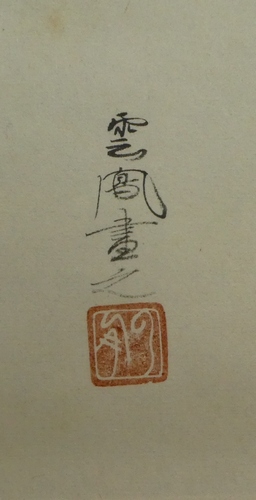 雲鳳畫之